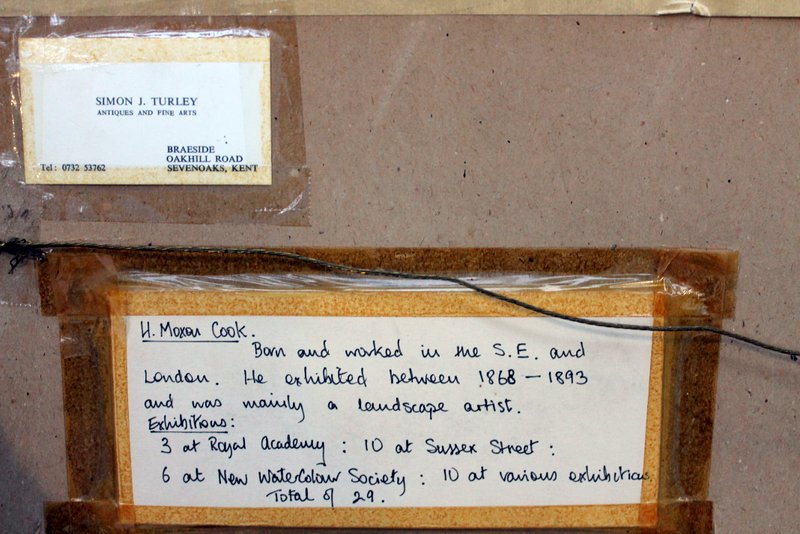 SIMON J. TURLEY
ANTIQUES AND FINE ARTS
BRAESIDE
OAKHILL ROAD
Tel: 0732 53762 SEVENOAKS, KENT
H. Moxon Cook.
Born and worked in the S.E. and
London. He exhibited between 1868 – 1893
and was mainly a landscape artist.
Exhibitions:
3 at Royal Academy : 10 at Sussex Street :
6 at New WaterColour Society : 10 at various exhibitions
Total of 29.